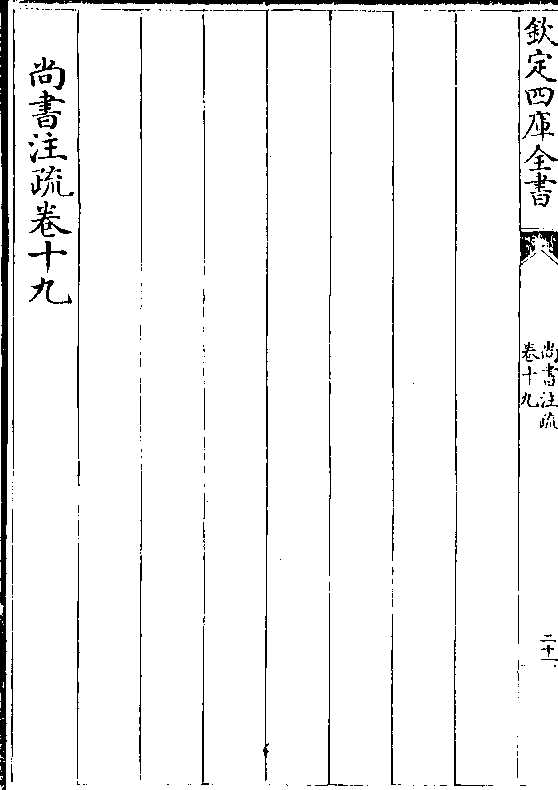 欽定四庫全書
尚書注疏
卷十九
二十一
尚書注疏卷十九